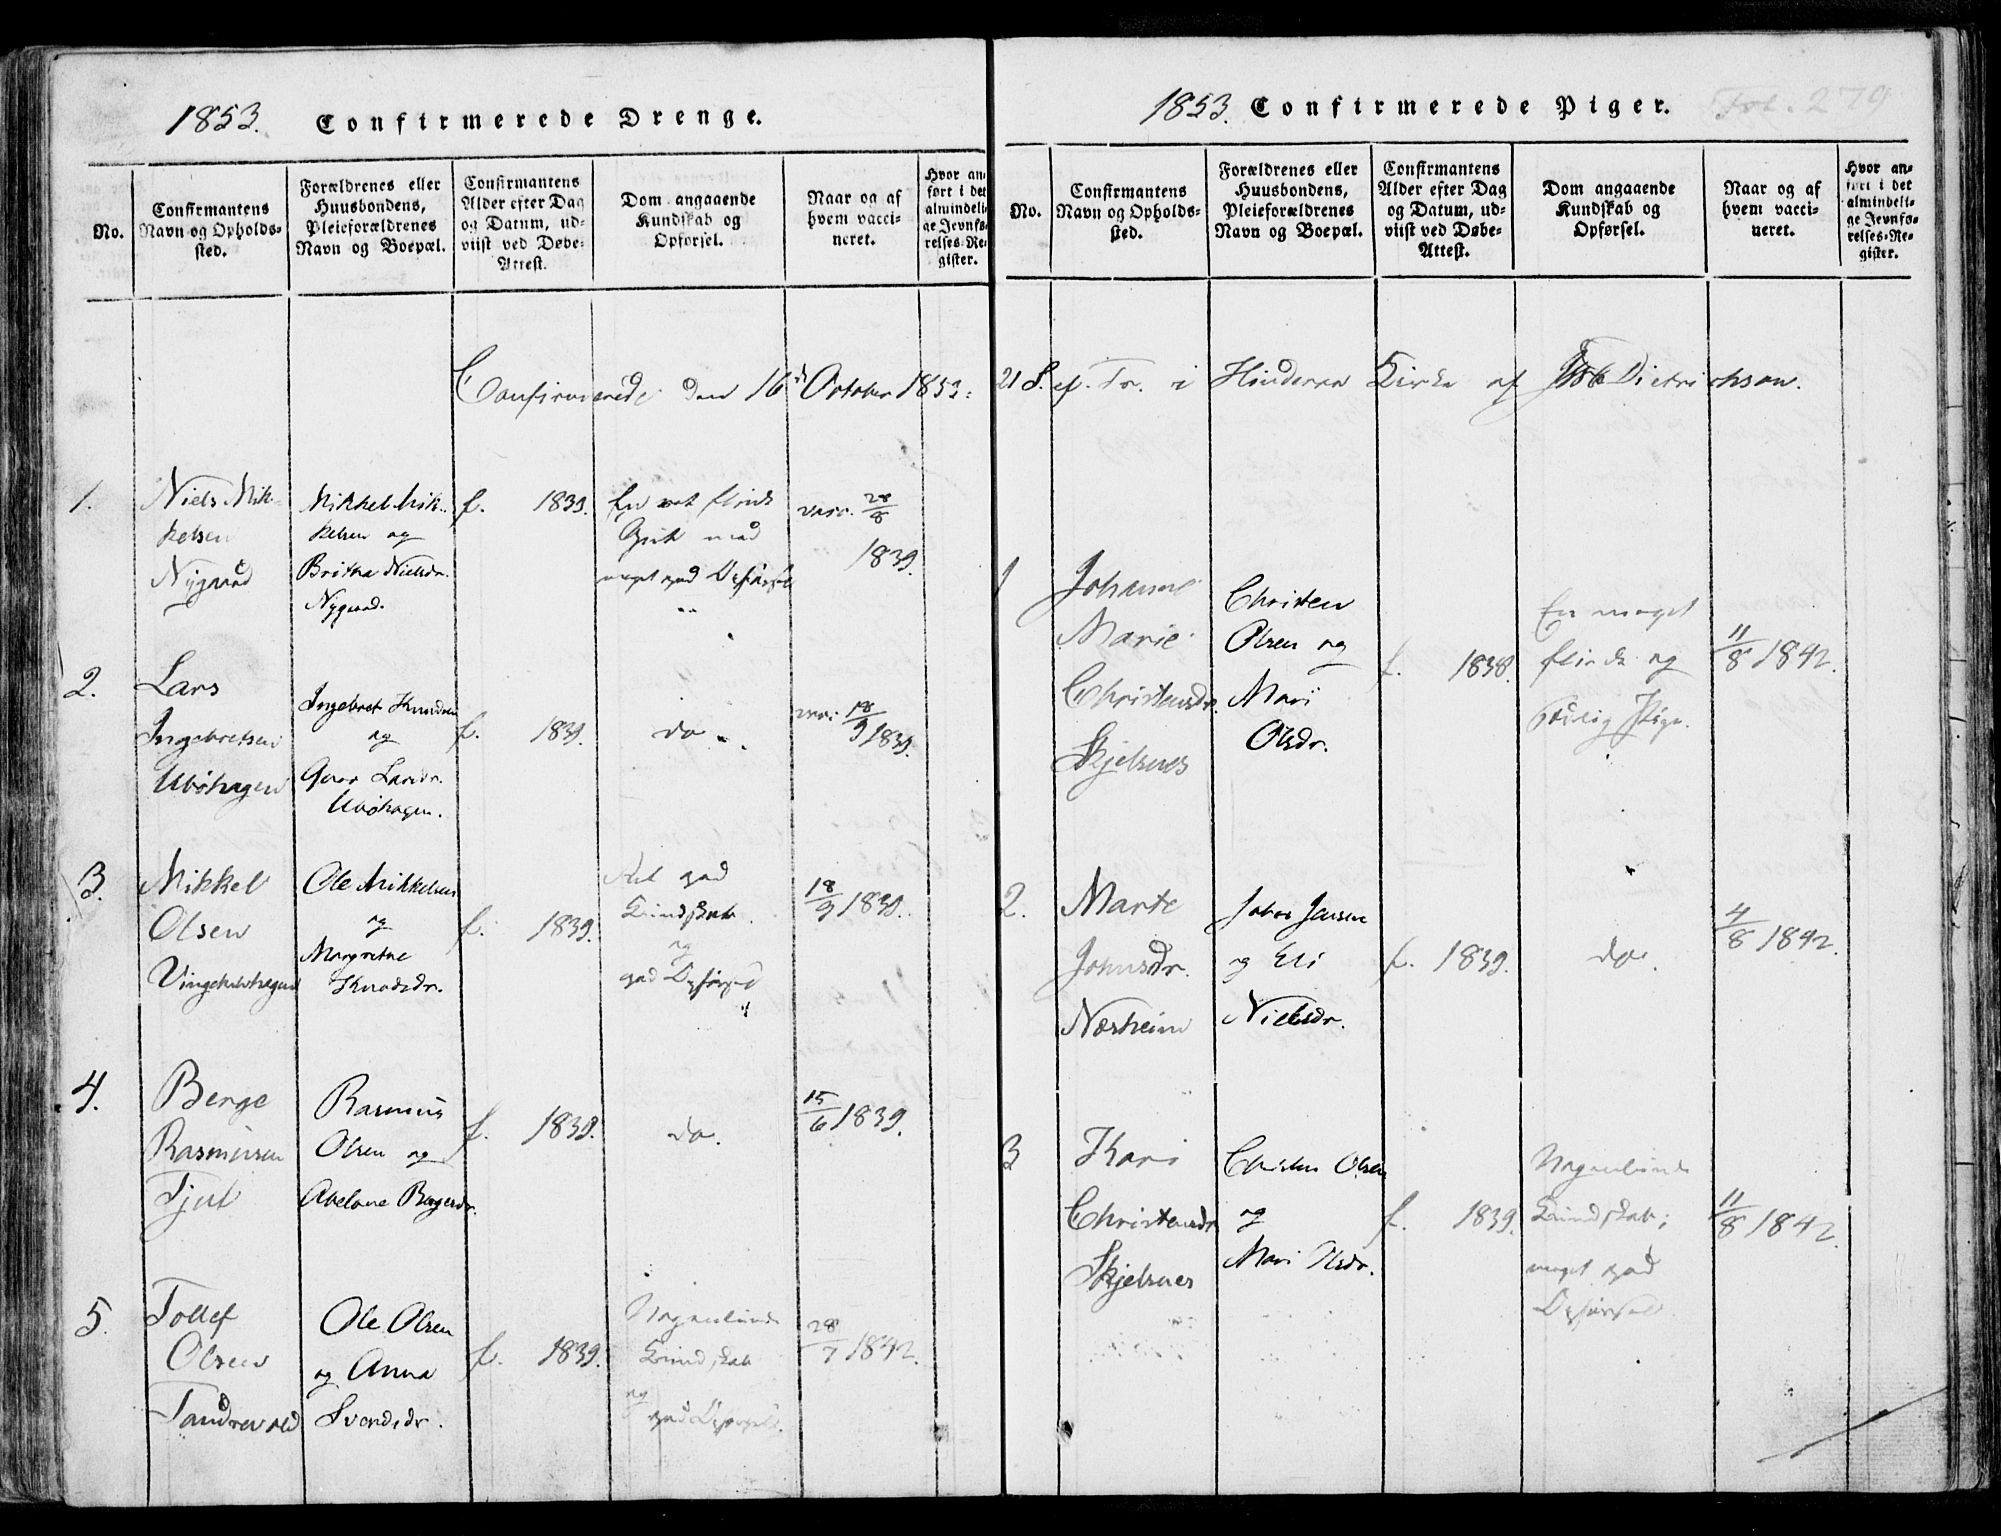 1853. Confirmerede Drenge.
No.
Confirmantens
Navn og Opholds-
sted.
Forældrenes eller
Huusbondens,
Pleieforældrenes
Navn og Boepæl.
Confirmantens
Alder efter Dag
og Datum, ud-
viist ved Døbe-
Attest.
Dom angaaende
Kundskab og
Opførsel.
Naar og af
hvem vacci-
neret.
Hvor an-
ført i det
almindeli-
ge Jevnfø-
relses-Re-
gister.
Confirmerede den 16de October 1853.
1.
Niels Mik-
kelsen
Nygaard
Mikkel Mik-
kelsen og
Britha Nielsdr.
Nygaard.
f. 1839.
flink
Gut med
meget god Opførsel
vacc. 28/8
1839.
2.
Lars
Ingebretsen
Ubøhagen
Ingebret Knudsen
og
Larsdr.
Ubøhagen.
f. 1839.
do
vacc. 18/9 1839.
3.
Mikkel
Olsen
Ole Mikkelsen
og
Margrethe
Knudsdr.
f. 1839.
Ret god
Kundskab
og
god Opførsel
18/9 1839.
4.
Berge
Rasmusen
Tjul
Rasmus
Olsen og
Abelone Bergesdr.
f. 1839.
do.
15/6 1839.
5.
Tollef
Olsen
Tandrevold
Ole Olsen
og Anna
Svendsdr.
f. 1839.
Nogenlunde
Kundskab
og
god Opførsel.
28/7 1842.
1853. Confirmerede Piger. Fol. 279
No.
Confirmantens
Navn og Opholds-
sted.
Forældrenes eller
Huusbondens,
Pleieforældrenes
Navn og Boepæl.
Confirmantens
Alder efter Dag
og Datum, ud-
viist ved Døbe-
Attest.
Dom angaaende
Kundskab og
Opførsel.
Naar og af
hvem vacci-
neret.
Hvor an-
ført i det
almindeli-
ge Jevnfø-
relses-Re-
gister.
21 S. ef. Tr. i Hinderaa Kirke af Dietrichson.
1
Johanne
Marie
Christensdr.
Skjelsnes
Christen
Olsen og
Mari
Olsdr.
f. 1838.
En meget
flink og
Pige.
11/8 1842.
2.
Marte
Johnsdr.
Nærheim
John Jensen
og Eli
Nielsdr.
f. 1839.
do.
4/8 1842.
3
Kari
Christensdr
Skjelsnes
Christen Olsen
og
Mari Olsdr.
f. 1839.
Nogenlunde
Kundskab;
meget god
Opførsel.
11/8 1842.